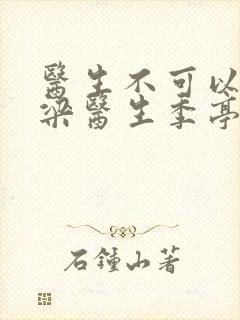 醫生不可以
梁醫生季亭
石鐘山著